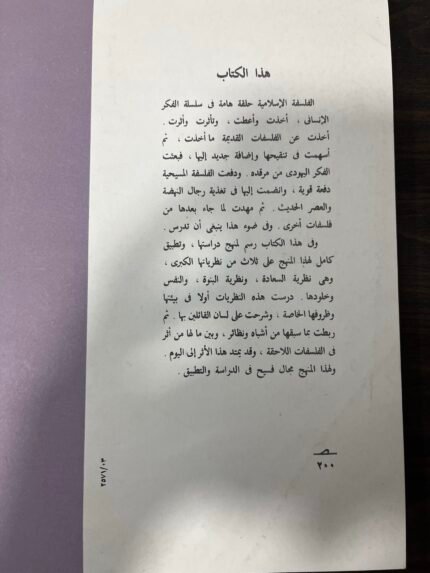 هذا الكتاب
الفلسفة الإسلامية حلقة هامة فى سلسلة الفكر
الإنسانى ، أخذت وأعطت ، وتأثرت وأثرت .
أخذت عن الفلسفات القديمة ما أخذت ، ثم
أسهمت فى تنقيحها وإضافة جديد إليها ، فبعثت
الفكر اليهودى من مرقده . ودفعت الفلسفة المسيحية
دفعة قوية ، وانضمت إليها فى تغذية رجال النهضة
والعصر الحديث . ثم مهدت لما جاء بعدها من
فلسفات أخرى . وفى ضوء هذا ينبغى أن تدرس .
وفى هذا الكتاب رسم لمنهج دراستها ، وتطبيق
كامل لهذا المنهج على ثلاث من نظرياتها الكبرى ،
وهى نظرية السعادة ، ونظرية النبوة ، والنفس
وخلودها . درست هذه النظريات أولا فى بيئتها
وظروفها الخاصة ، وشرحت على لسان القائلين بها . ثم
ربطت بما سبقها من أشباه ونظائر ، وبين ما لها من أثر
فى الفلسفات اللاحقة ، وقد يمتد هذا الأثر إلى اليوم .
ولهذا المنهج مجال فسيح فى الدراسة والتطبيق .
٢٠٠